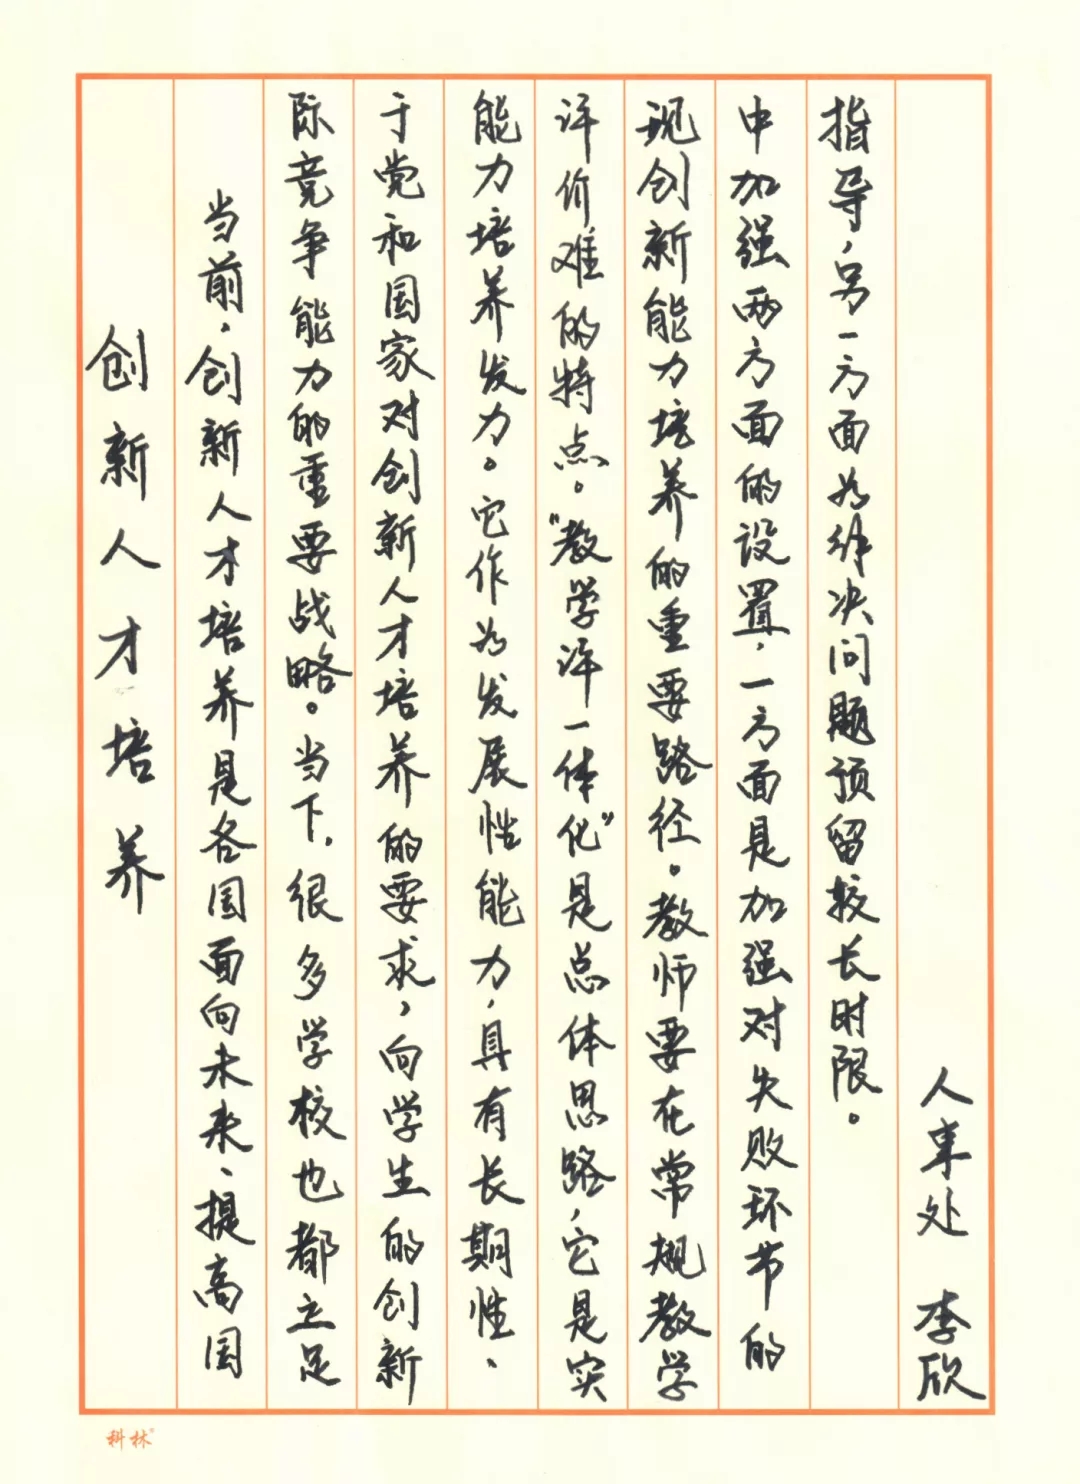 创新人才培养
当前，创新人才培养是各国面向未来、提高国
际竞争能力的重要战略。当下，很多学校也都立足
于党和国家对创新人才培养的要求，向学生的创新
能力培养发力。它作为发展性能力，具有长期性、
评价难的特点。“教学评一体化”是总体思路，它是实
现创新能力培养的重要路径。教师要在常规教学
中加强两方面的设置，一方面是加强对失败环节的
指导，另一方面为解决问题预留较长时限。
人事处 李欣
科林